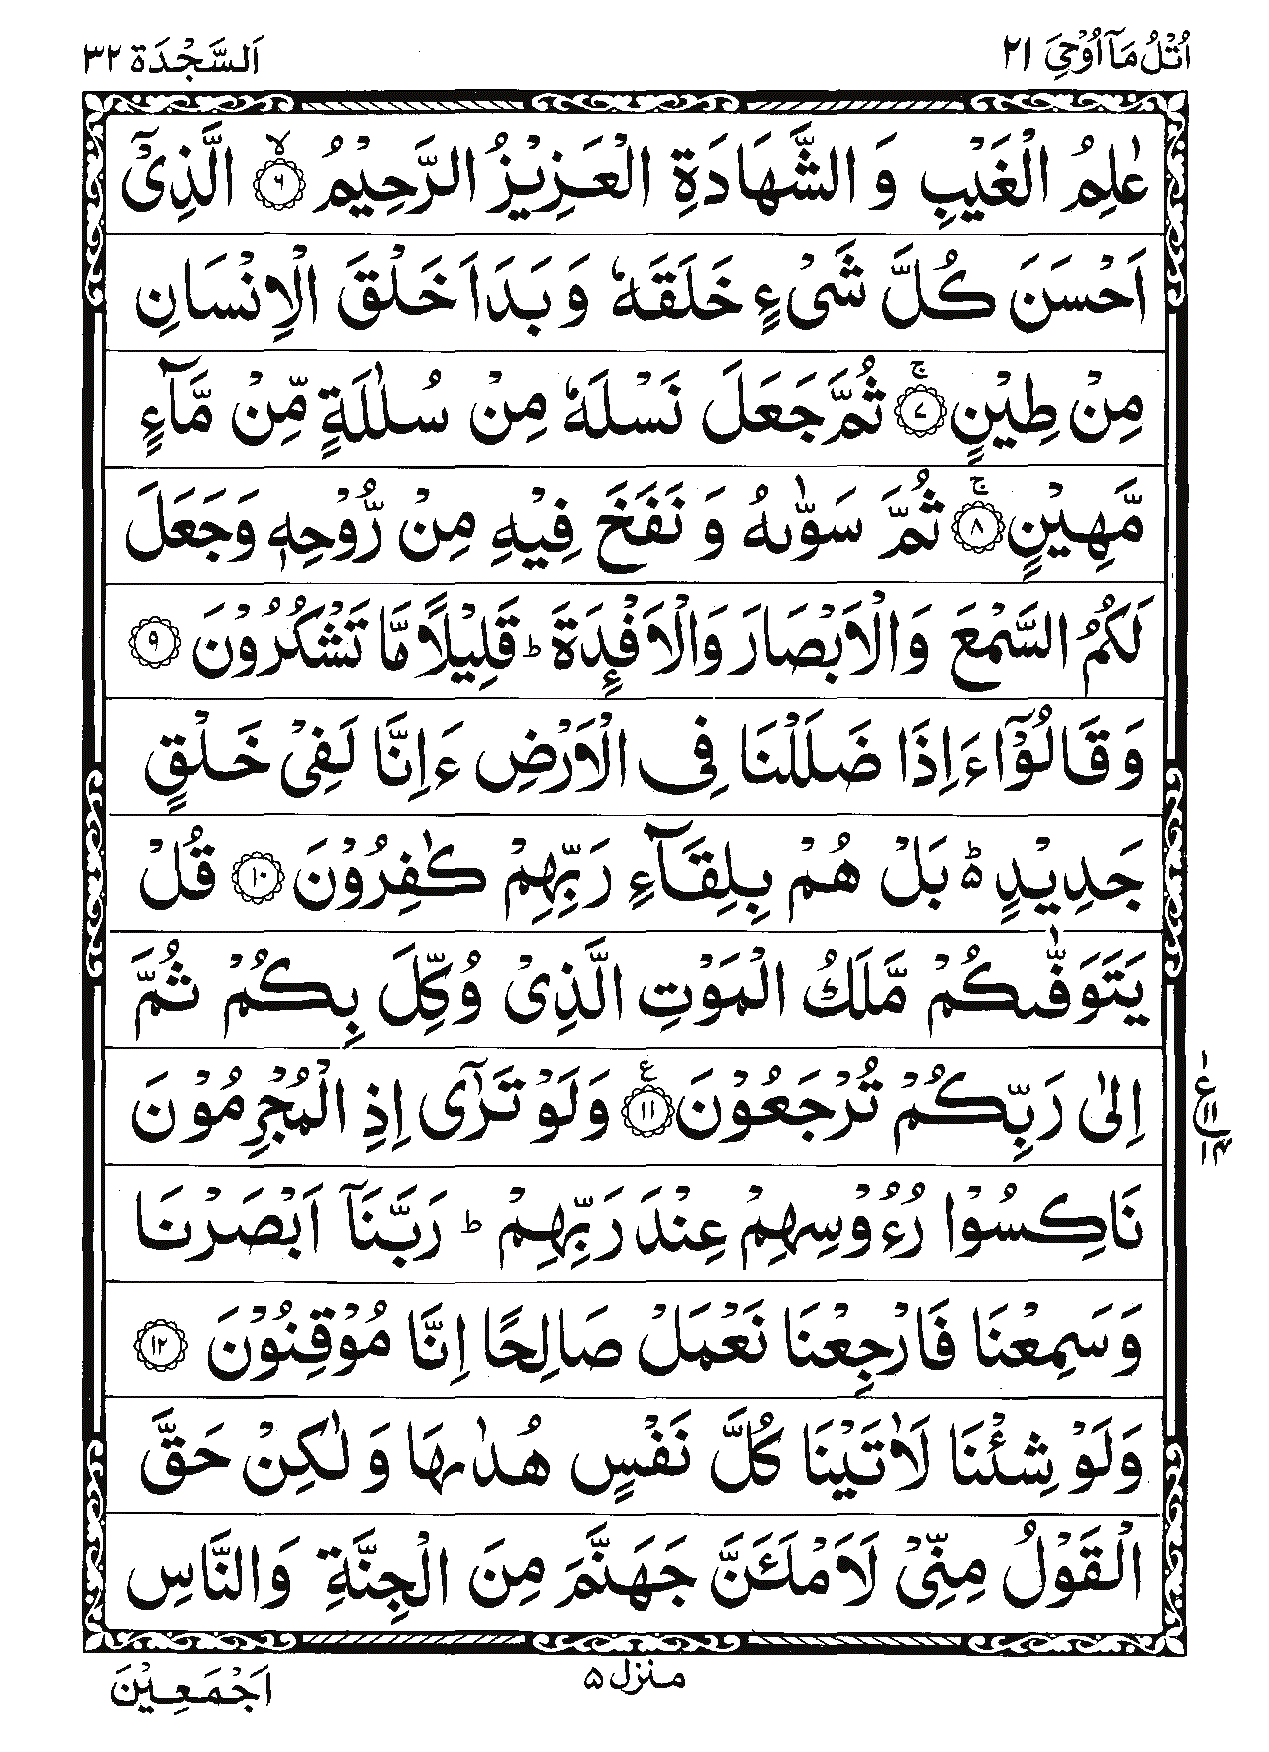 اُتْلُ مَاۤ اُوْحِيَ ٢١
اَلسَّجْدَة ٣٢
عٰلِمُ الْغَيْبِ وَ الشَّهَادَةِ الْعَزِيْزُ الرَّحِيْمُ ۙ﴿٦﴾ الَّذِيْۤ
اَحْسَنَ كُلَّ شَيْءٍ خَلَقَهٗ وَ بَدَاَ خَلْقَ الْاِنْسَانِ
مِنْ طِيْنٍ ۚ﴿٧﴾ ثُمَّ جَعَلَ نَسْلَهٗ مِنْ سُلٰلَةٍ مِّنْ مَّآءٍ
مَّهِيْنٍ ۚ﴿٨﴾ ثُمَّ سَوّٰىهُ وَ نَفَخَ فِيْهِ مِنْ رُّوْحِهٖ وَجَعَلَ
لَكُمُ السَّمْعَ وَالْاَبْصَارَ وَالْاَفْـِٕدَةَ ؕ قَلِيْلًا مَّا تَشْكُرُوْنَ ﴿٩﴾
وَقَالُوْۤا ءَاِذَا ضَلَلْنَا فِي الْاَرْضِ ءَاِنَّا لَفِيْ خَلْقٍ
جَدِيْدٍ ؕ۬ بَلْ هُمْ بِلِقَآءِ رَبِّهِمْ كٰفِرُوْنَ ﴿١٠﴾ قُلْ
يَتَوَفّٰىكُمْ مَّلَكُ الْمَوْتِ الَّذِيْ وُكِّلَ بِكُمْ ثُمَّ
اِلٰى رَبِّكُمْ تُرْجَعُوْنَ ﴿١١﴾ ع وَلَوْ تَرٰۤى اِذِ الْمُجْرِمُوْنَ
١ ع ١١ ١٤
نَاكِسُوْا رُءُوْسِهِمْ عِنْدَ رَبِّهِمْ ؕ رَبَّنَاۤ اَبْصَرْنَا
وَسَمِعْنَا فَارْجِعْنَا نَعْمَلْ صَالِحًا اِنَّا مُوْقِنُوْنَ ﴿١٢﴾
وَلَوْ شِئْنَا لَاٰتَيْنَا كُلَّ نَفْسٍ هُدٰىهَا وَ لٰكِنْ حَقَّ
الْقَوْلُ مِنِّيْ لَاَمْلَـَٔنَّ جَهَنَّمَ مِنَ الْجِنَّةِ وَالنَّاسِ
منزل ٥
اَجْمَعِيْنَ